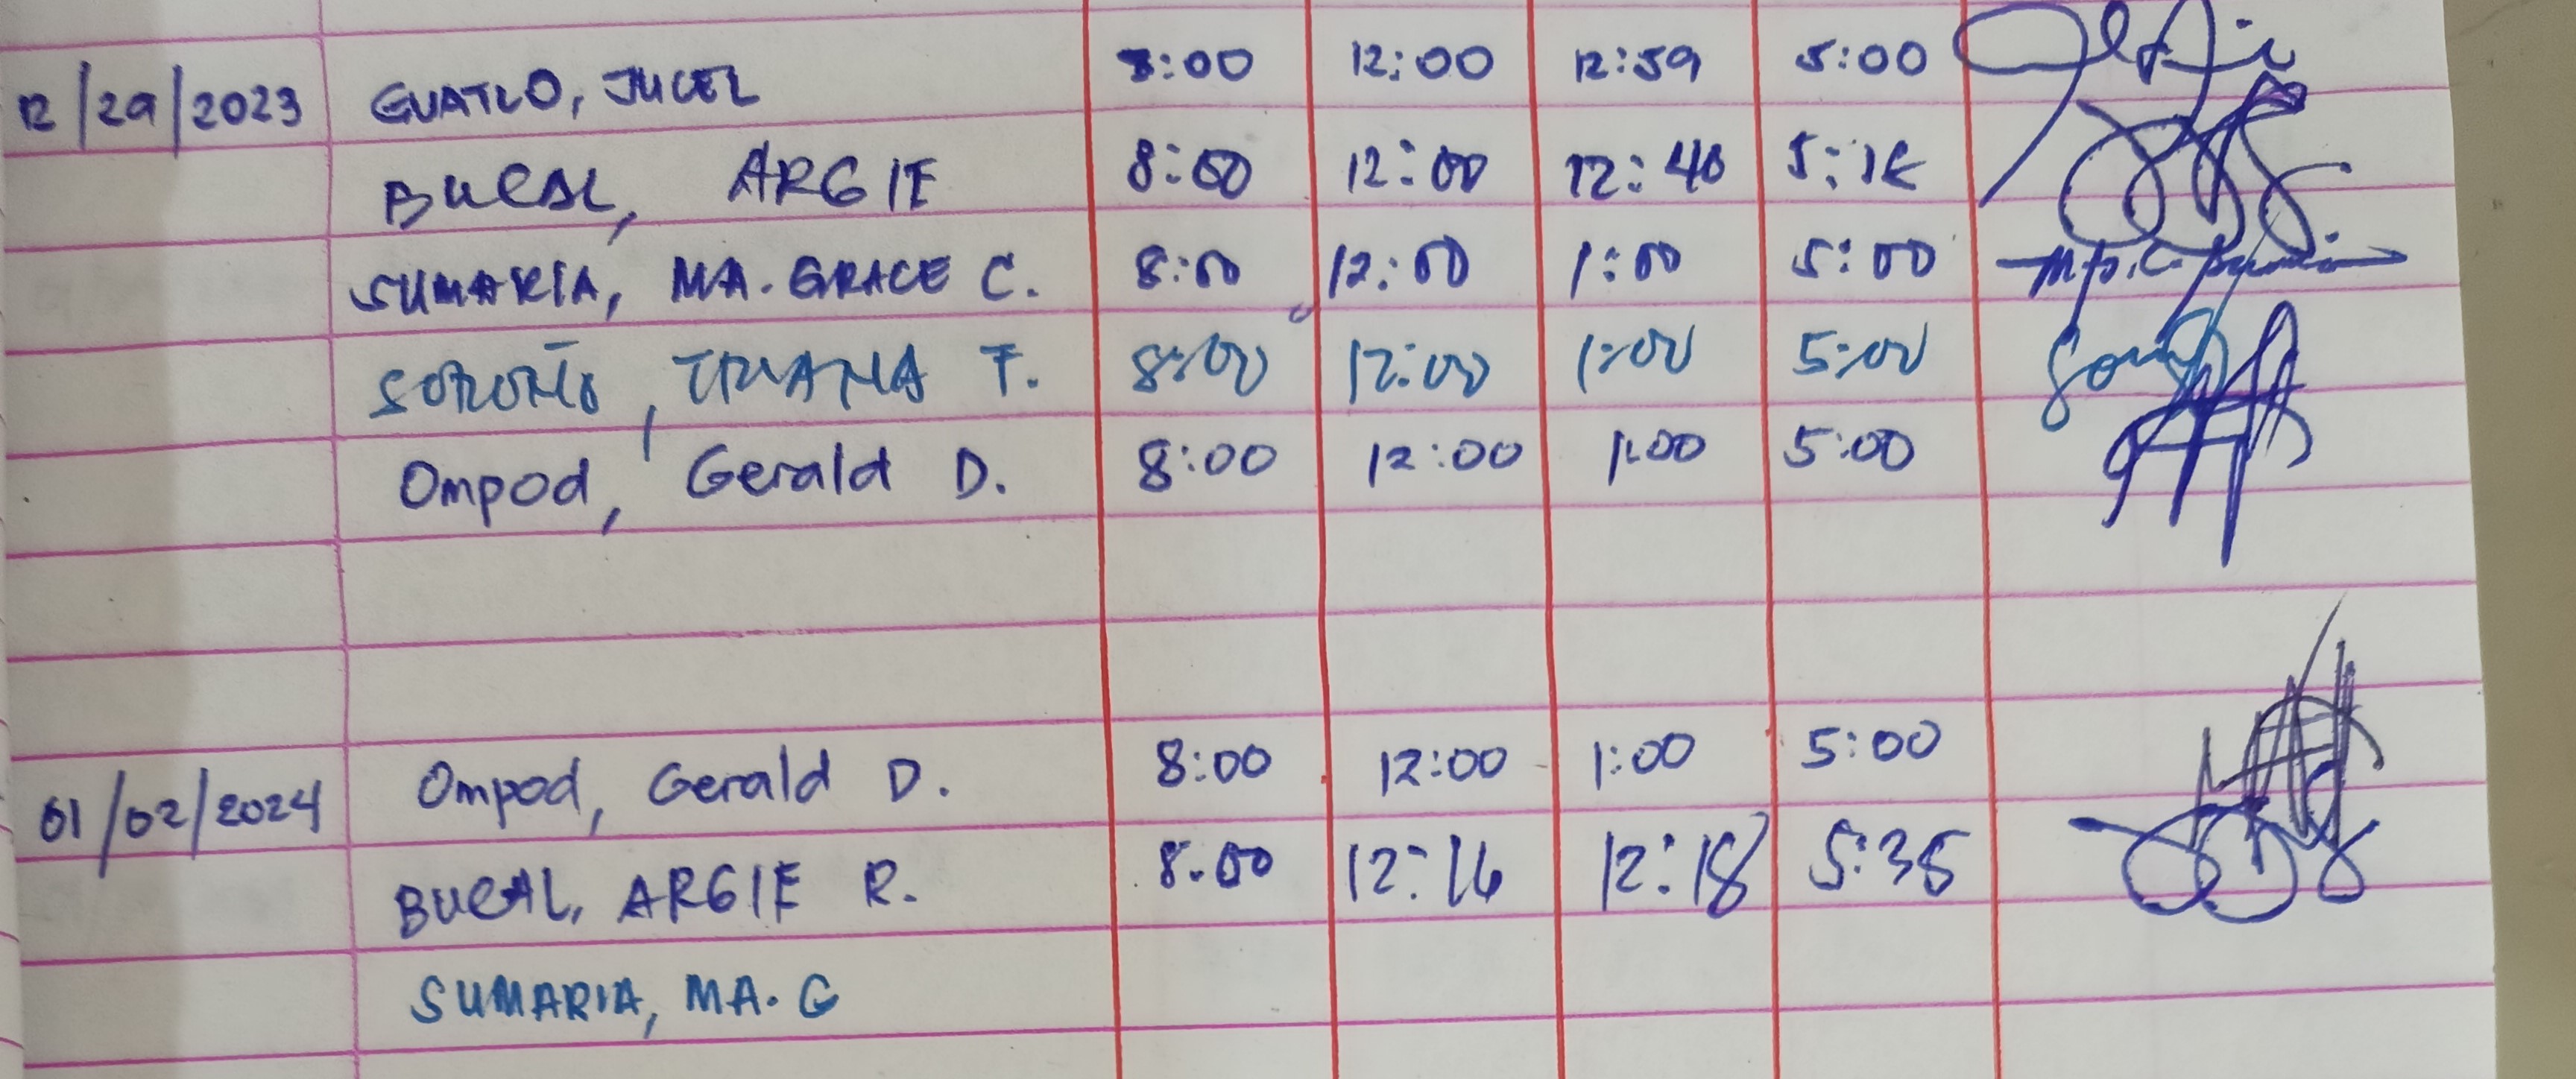 12/29/2023 GUATLO, JUCEL 8:00 12:00 12:59 5:00
BUCAL, ARGIE 8:00 12:00 12:40 5:15
SUMARIA, MA. GRACE C. 8:00 12:00 1:00 5:00
T. 8:00 12:00 1:00 5:00
Ompod, Gerald D. 8:00 12:00 1:00 5:00
01/02/2024 Ompod, Gerald D. 8:00 12:00 1:00 5:00
BUCAL, ARGIE R. 8:00 12:16 12:18 5:35
SUMARIA, MA. G